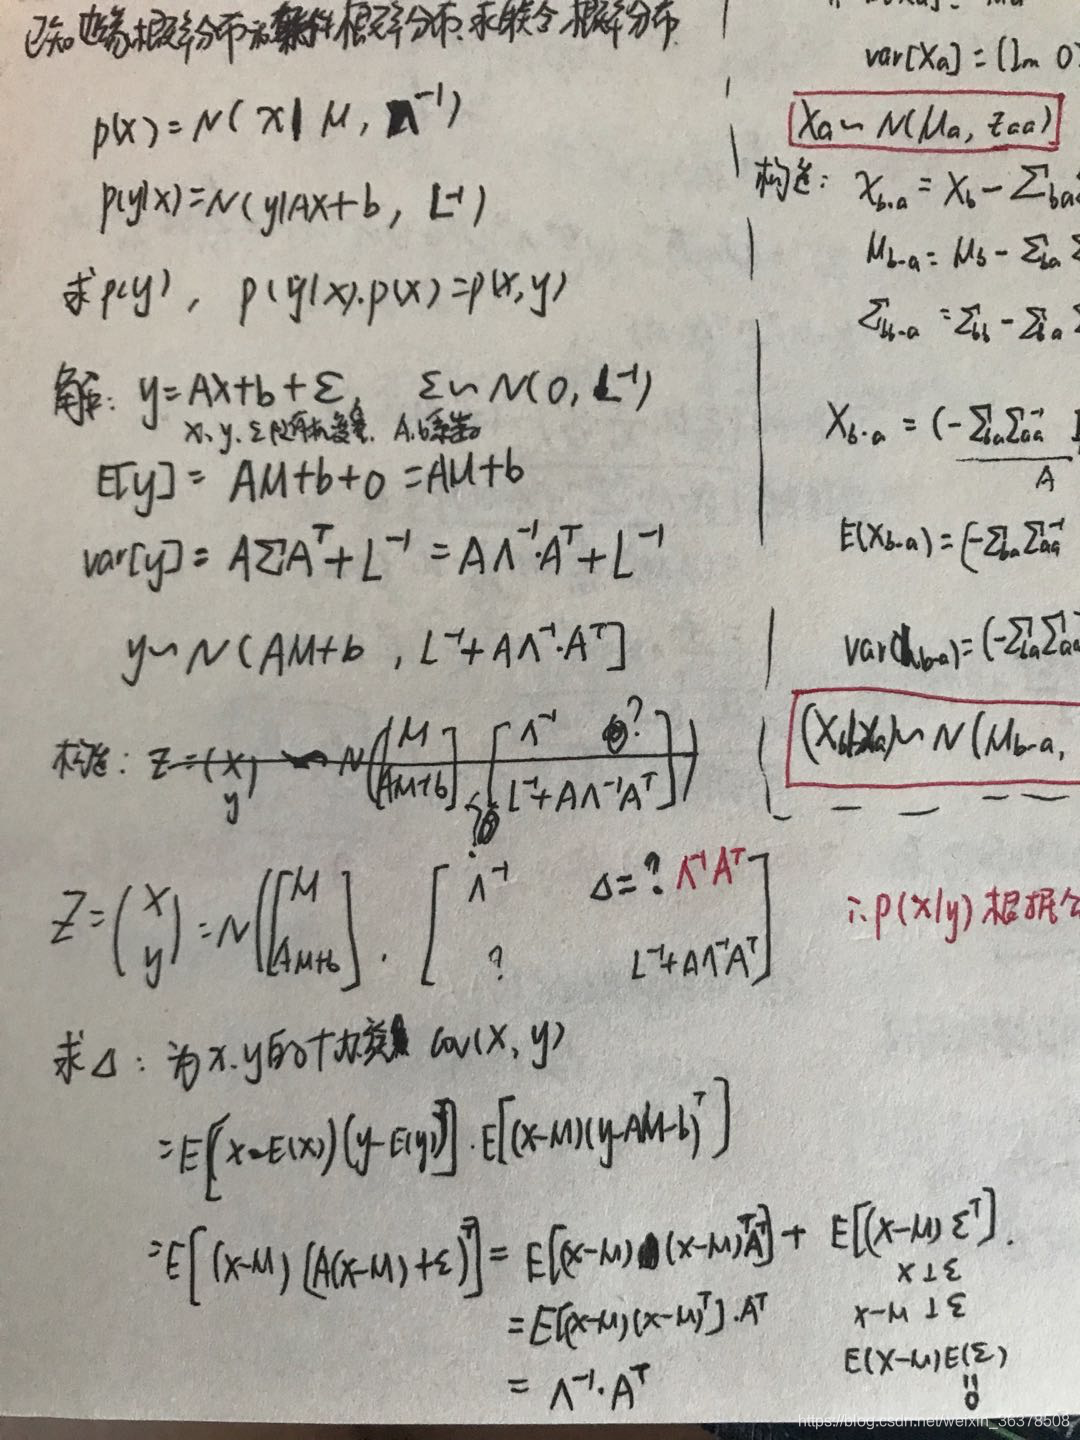 已知边缘概率分布和条件概率分布,求联合概率分布.
p(x) = N(x| μ, Λ⁻¹)
p(y|x) = N(y|Ax+b, L⁻¹)
求p(y), p(y|x).p(x) = p(x,y)
解: y = Ax+b+ε, ε ~ N(0, L⁻¹)
x、y、ε 随机变量. A.b系数
E[y] = Aμ+b+0 = Aμ+b
var[y] = AΣAᵀ+L⁻¹ = AΛ⁻¹·Aᵀ+L⁻¹
y ~ N(Aμ+b , L⁻¹+AΛ⁻¹·Aᵀ]
构造: Z = (x y) ~ N([μ Aμ+b] [Λ⁻¹ ? ? L⁻¹+AΛ⁻¹Aᵀ])
Z = (x y) = N([μ Aμ+b] . [Λ⁻¹ Δ=? Λ⁻¹Aᵀ ? L⁻¹+AΛ⁻¹Aᵀ]
求Δ: 为x.y的 Cov(x, y)
= E[(x-E(x))(y-E(y))ᵀ] . E[(x-μ)(y-Aμ-b)ᵀ]
= E[(x-μ)(A(x-μ)+ε)ᵀ] = E[(x-μ)(x-μ)ᵀAᵀ] + E[(x-μ)εᵀ].
x⊥ε
= E[(x-μ)(x-μ)ᵀ].Aᵀ x-μ⊥ε
E(x-μ)E(ε)
= Λ⁻¹·Aᵀ
=0
var[Xa] = (Im 0
Xa ~ N(μa, Σaa)
构造: x_b·a = X_b - Σba
μb·a = μb - Σba
Σbb·a = Σbb - Σba
X_b·a = (-ΣbaΣaa⁻¹
A
E(Xb·a) = (-ΣbaΣaa⁻¹
var(Xb·a) = (-ΣbaΣaa⁻¹
(Xb|Xa) ~ N(μb·a,
∴p(x|y)根据
https://blog.csdn.net/weixin_36378508